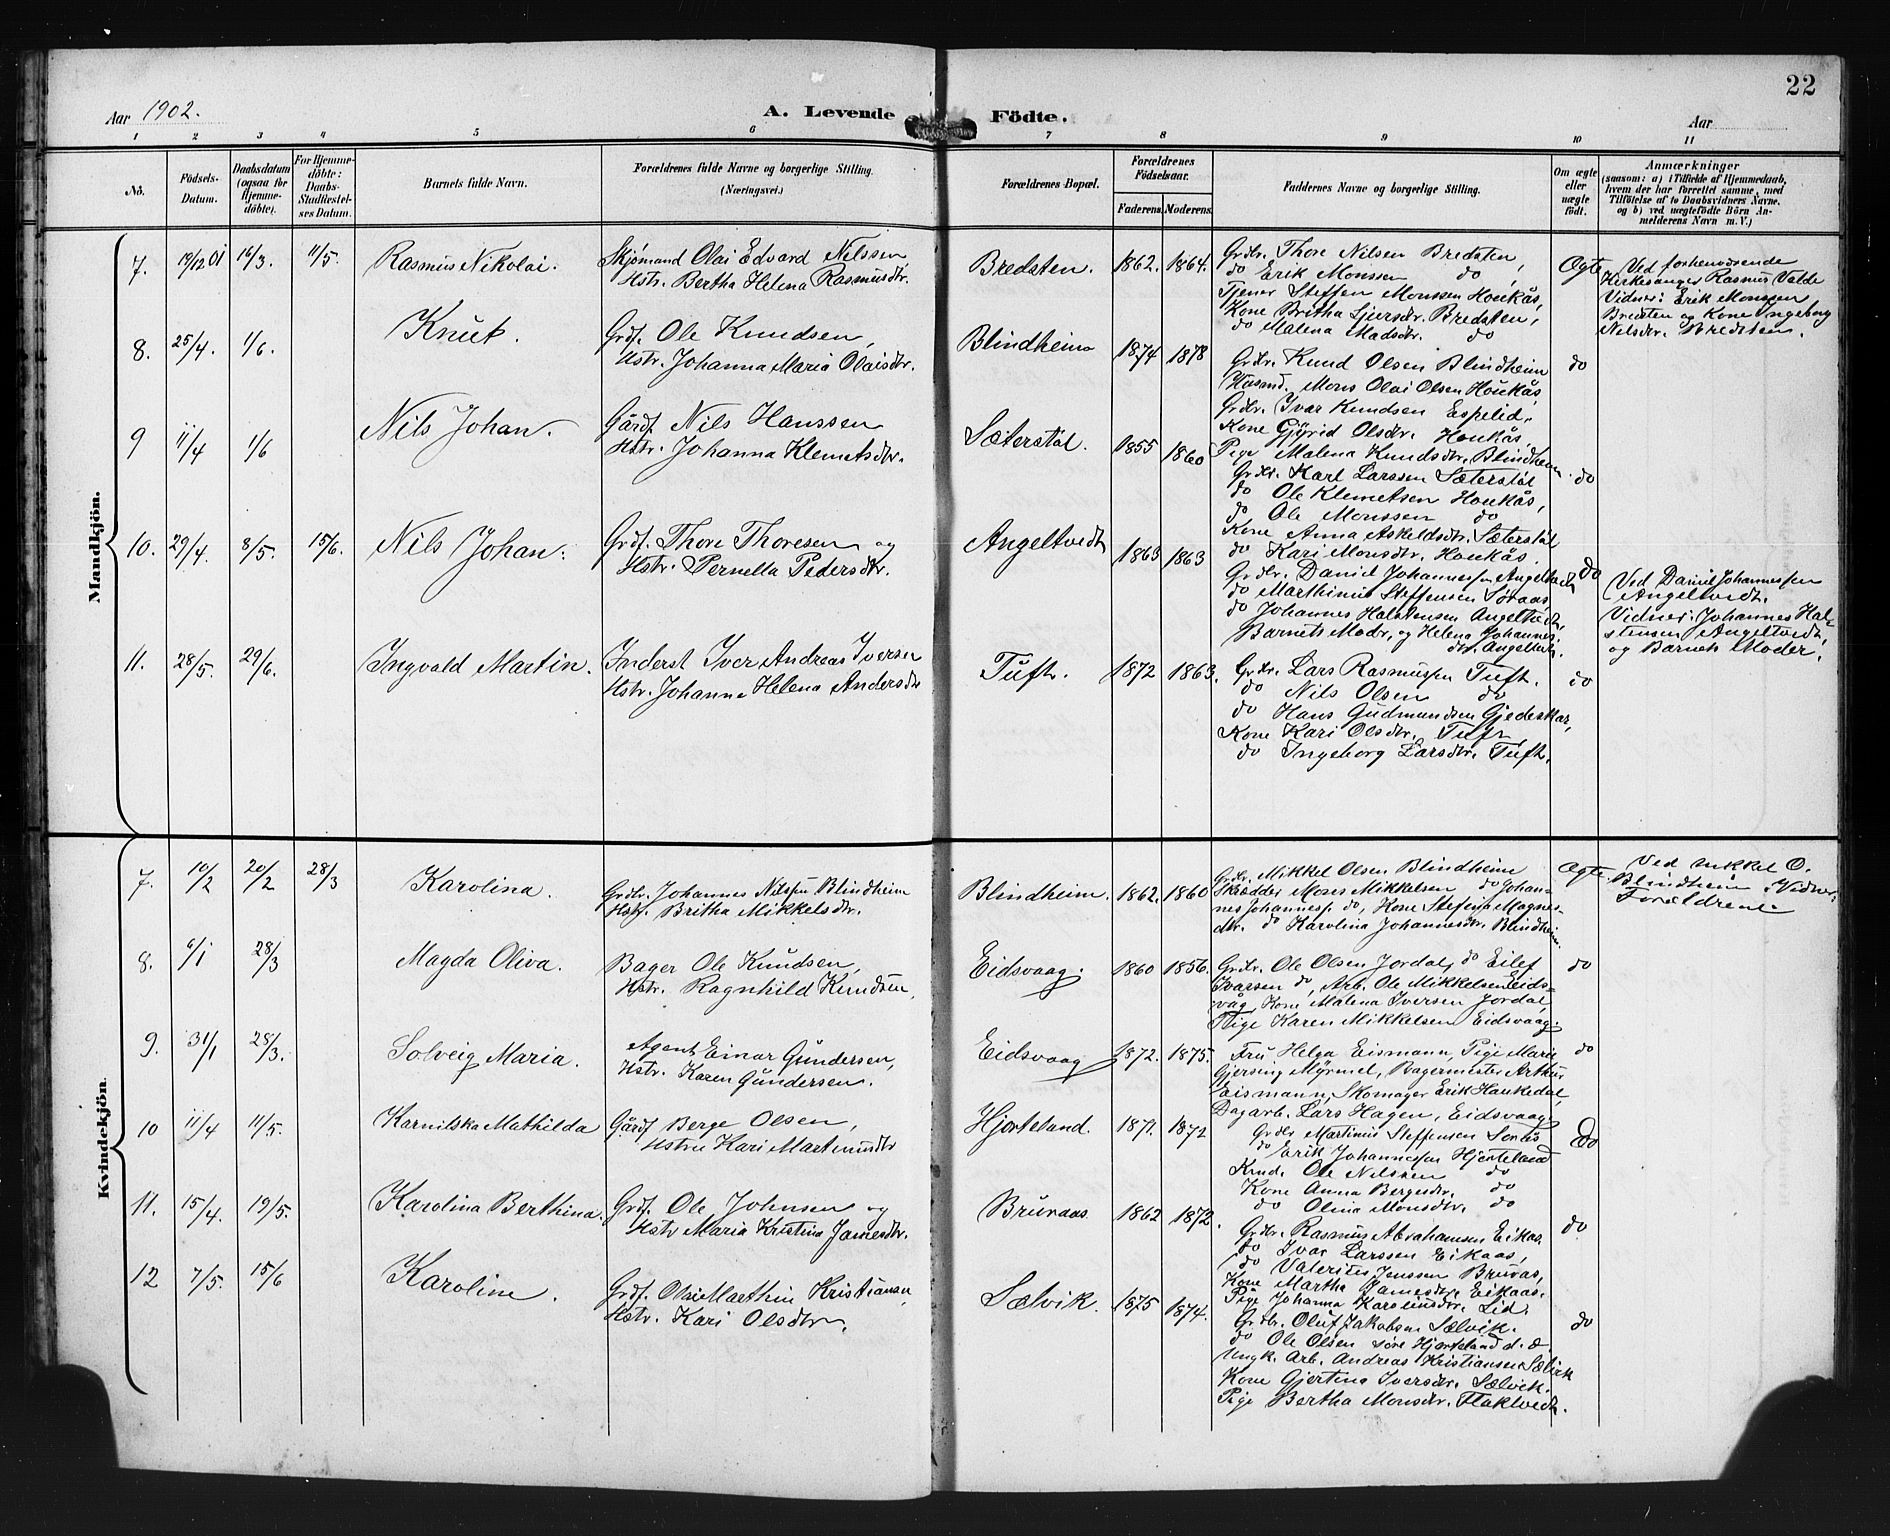 22
Aar 1902.
A. Levende Födte.
Aar
1 2 3 4 5 6 7 8 9 10 11
No.
Födsels-Datum.
Daabsdatum (ogsaa for Hjemme-döbte).
For Hjemme-döbte: Daabs-Stadfæstel-ses Datum.
Barnets fulde Navn.
Forældrenes fulde Navne og borgerlige Stilling.
(Næringsvei.)
Forældrenes Bopæl.
Forældrenes Födselsaar.
Faderens. Moderens.
Faddernes Navne og borgerlige Stilling.
Om ægte eller uægte födt.
Anmærkninger
(saasom: a) i Tilfælde af Hjemmedaab,
hvem der har forrettet samme, med
Tilföielse af to Daabsvidners Navne.
og b) ved uægtefödte Börn An-
melderens Navn m. V.)
Mandkjön.
7. 19/12 01 16/3. 11/5. Rasmus Nikolai.
Skjømand Olai Edvard Nilssen,
Hstr. Bertha Helena Rasmusdtr.
Bredsten. 1862. 1864.
Grdbr. Thore Nilsen Bredsten,
do Erik Monssen do,
Tjener Steffen Monssen Houkås,
Kone Britha Sjursdtr. Bredsten,
do Malena Madsdtr. do
Ægte
Ved forhenværende
Kirkesanger Rasmus Valde
Vidner: Erik Monssen
Bredsten og Kone Ingeborg
Nilsdtr. Bredsten.
8. 25/4. 1/6. Knut.
Grdf. Ole Knudsen,
Hstr. Johanna Maria Olaisdtr.
Blindheim 1874 1878
Grdbr. Knud Olsen Blindheim
Husmd. Mons Olai Olsen Houkås
Grdbr. Ivar Knudsen Espelid,
Kone Gjyrid Olsdtr. Houkås,
Pige Malena Knudsdtr. Blindheim.
do
9 11/4 1/6 Nils Johan.
Gårdf. Nils Hanssen
Hstr. Johanna Klemetsdtr.
Sæterstøl. 1855 1860
Grdbr. Karl Larssen Sæterstøl
do Ole Klemetsen Houkås,
do Ole Monssen do
Kone Anna Askeldsdtr. Sæterstøl
do Kari Monsdtr. Houkås
do
10. 29/4. 8/5. 15/6. Nils Johan.
Grdf. Thore Thoresen og
Hstr. Pernella Pedersdtr.
Angeltvedt 1863 1863
Grdbr. Daniel Johannessen Angeltvedt
do Marthinus Steffensen Søraas,
do Johannes Halstensen Angeltvedt,
Barnets Moder, og Helena Johannes-
dtr. Angeltvedt.
do
Ved Daniel Johannessen
Angeltvedt.
Vidner: Johannes Hal-
stensen Angeltvedt,
og Barnets Moder.
11. 28/5. 29/6. Ingvald Martin.
Inderst Iver Andreas Iversen
Hstr. Johanne Helena Andersdtr
Tuft. 1872 1863.
Grdbr. Lars Rasmussen Tuft.
do Nils Olsen do
do Hans Gudmundsen Gjedeskar,
Kone Kari Olsdtr. Tuft,
do Ingeborg Larsdtr. Tuft.
do
Kvindekjön.
7. 10/2 20/2 28/3 Karolina.
Grdbr. Johannes Nilssen Blindheim
Hstr. Britha Mikkelsdtr.
Blindheim. 1862. 1860
Grdbr. Mikkel Olsen Blindheim
Skrædder Moses Mikkelsen do Johan-
nes Johanness. do, Kone Stefena Magnes-
dtr. do Karolina Johannesdtr. Blindheim.
Ægte
Ved Mikkel O.
Blindheim. Vidner:
Forældrene.
8. 6/1 28/3 Magda Oliva.
Bager Ole Knudsen,
Hstr. Ragnhild Knudsen,
Eidsvaag. 1860 1856.
Grdbr. Ole Olsen Jordal, do Eilef
Ivarsen do, Arb. Ole Mikkelsen Eids-
våg, Kone Malena Iversen Jordal,
Pige Karen Mikkelsen Eidsvaag.
do
9. 31/1 28/3. Solveig Maria.
Agent Einar Gundersen,
Hstr. Karen Gundersen.
Eidsvaag 1872. 1875.
Fru Helga Eismann, Pige Marie
Gjersvig Myrmel, Bagermester Arthur
Eismann, Skomager Erik Haukedal,
Dagarb. Lars Hagen, Eidsvaag
do
10 11/4 11/5. Karnilska Mathilda
Gårdf Berge Olsen,
Hstru Kari Martinusdtr
Hjorteland. 1871. 1872
Grdbr Martinus Steffensen Sørås
do Erik Johannessen Hjorteland
Ole Nilssen do
Kone Anna Bergesdtr. do
do Olina Monsdtr. do
do
11. 15/4. 19/5. Karolina Berthina.
Grdf. Ole Johnsen og
Hstr Maria Kristina Jamesdtr.
Bruraas 1862 1872.
Grdbr. Rasmus Abrahamsen Eikås
do Ivar Larssen Eikaas,
do Jenssen Brurås,
Kone Martha Jamesdtr. Eikaas.
Pige Johanna Lid.
do
12 7/5. 15/6 Karoline.
Grdf. Olai Marthin Kristiansen,
Hstr. Kari Olsdtr.
Sælvik. 1875 1874.
Grdbr. Oluf Jakobsen Sælvik.
do Ole Olsen søre Hjorteland d. æ
Ungk. Arb. Andreas Kristiansen Sælvik
Kone Gjertina Iversdtr. Sælvik.
Pige Bertha Monsdtr. Flaktvedt.
do